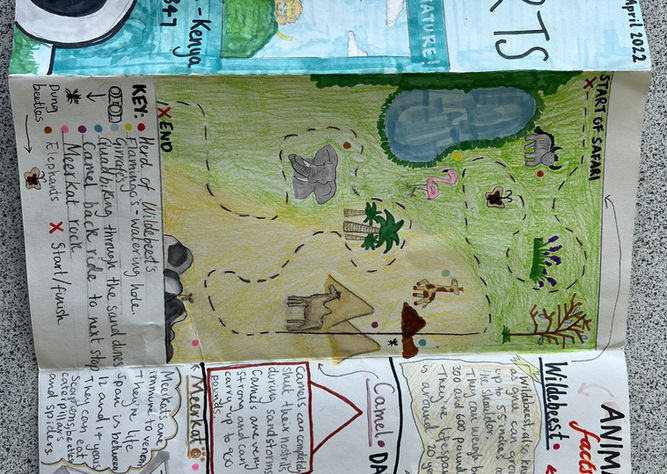 April 2022
RTS
NATURE!
- Kenya
START OF SAFARI
X END
KEY: Herd of Wildebeest's
Flamingo's - watering hole.
Giraffe
Quadbiking through the sand dunes
Camel back ride to next stop
Meerkat rock
Elephants X Start/finish
Dung
beetles
ANIMA
facts
Wildebeest
Wildebeest, also kno
as gnu can gro
up to 55 inches a
the shoulder.
They can weigh be
300 and 600 pounds
They're lifespan
is around 20 y
Camel
DA
Camels can completely
shut their nostrils
during sandstorms
Camels are very
strong and can
carry up to 900
pounds.
Meerkat
Meerkats are
immune to venom
They're life
span is between
12 and 14 years
They can eat
Scorpions, beetles
caterpillars
and spiders